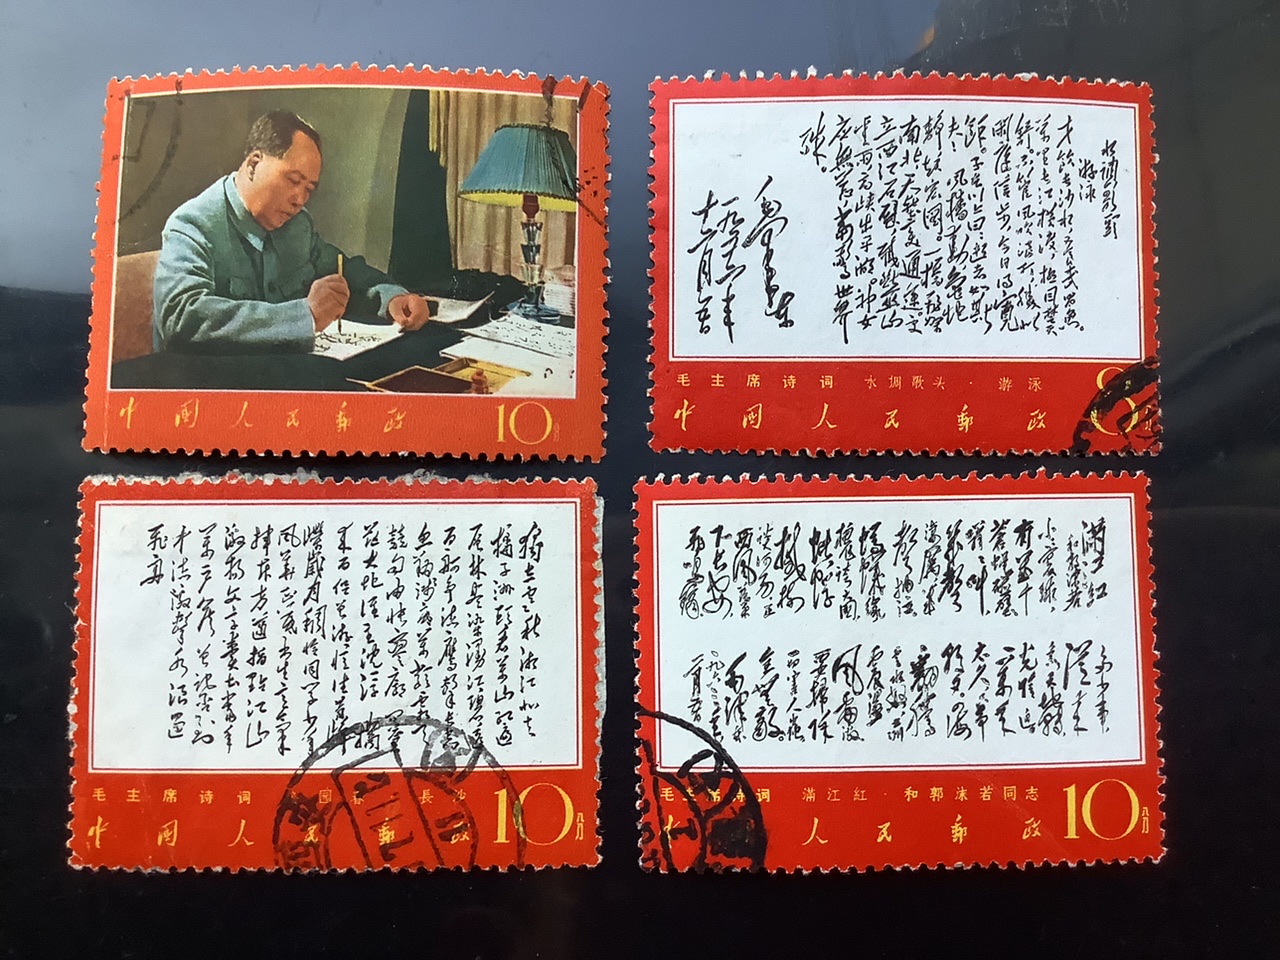 中國人民郵政
10分
水调歌头
游泳
才饮长沙水,又食武昌鱼。
万里长江横渡,极目楚天
舒。不管风吹浪打,胜似
闲庭信步,今日得宽
余。子在川上曰:逝者如斯
夫!风樯动,龟蛇
静,起宏图。一桥飞架
南北,天堑变通途。更
立西江石壁,截断巫山
云雨,高峡出平湖。神女
应无恙,当惊世界
殊。
毛泽东
一九五六年
十二月五日
毛主席诗词 水调歌头·游泳
中國人民郵政
8分
独立寒秋湘江北去
橘子洲头看万山红遍
层林尽染漫江碧透
百舸争流鹰击长空
鱼翔浅底万类霜天
竞自由怅寥廓问苍
茫大地谁主沉浮携
来百侣曾游忆往昔峥
嵘岁月稠恰同学少年
风华正茂书生意气
挥斥方遒指点江山
激扬文字粪土当年
万户侯曾记否到
中流击水浪遏
飞舟
毛主席诗词 园春·長沙
中國人民郵政
10分
满江红
和郭沫若
小小寰球,
有几个
苍蝇碰壁。
嗡嗡叫,
几声
凄厉,几
声抽泣。
蚂蚁缘
槐夸大国,
蚍蜉
撼树
谈何易。正
西风落叶
下长安,
飞鸣镝。
多少事,
从来
急;天地转,
光阴迫。
一万年
太久,只争
朝夕。四海
翻腾
云水怒,五洲
震荡
风雷激。
要扫除
一切害人虫,
全无敌。
毛泽东
一九六三年
一月九日
毛主席诗词 滿江紅·和郭沫若同志
中國人民郵政
10分